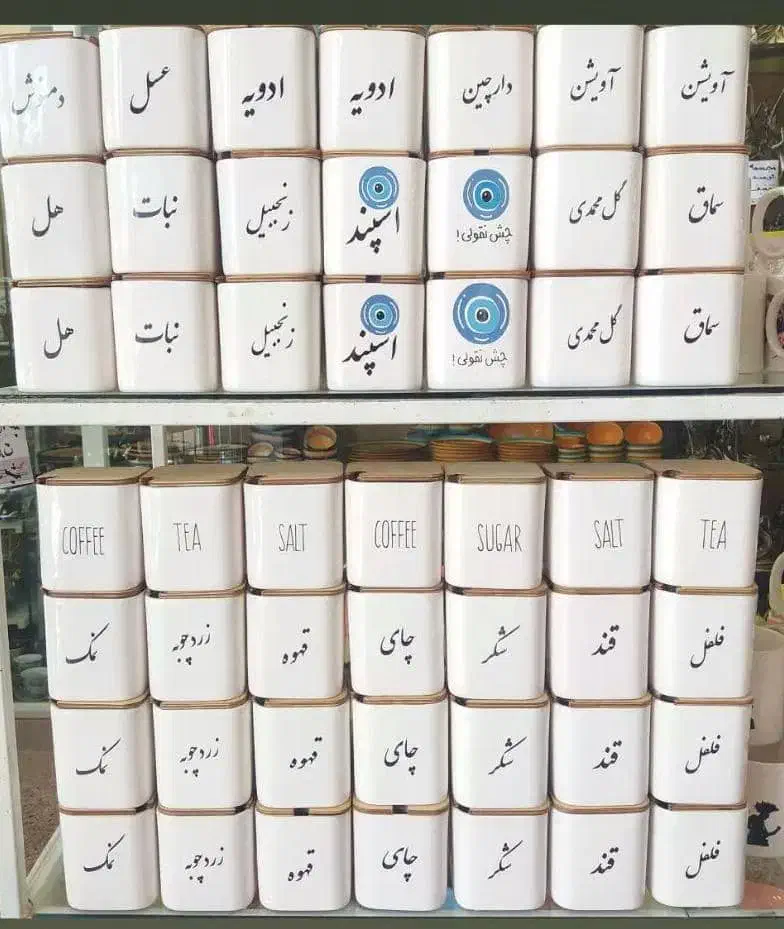 دمنوش
عسل
ادویه
ادویه
دارچین
آویشن
آویشن
هل
نبات
زنجبیل
اسپند
چش نقولی!
گل محمدی
سماق
هل
نبات
زنجبیل
اسپند
چش نقولی!
گل محمدی
سماق
COFFEE
TEA
SALT
COFFEE
SUGAR
SALT
TEA
نمک
زردچوبه
قهوه
چای
شکر
قند
فلفل
نمک
زردچوبه
قهوه
چای
شکر
قند
فلفل
نمک
زردچوبه
قهوه
چای
شکر
قند
فلفل